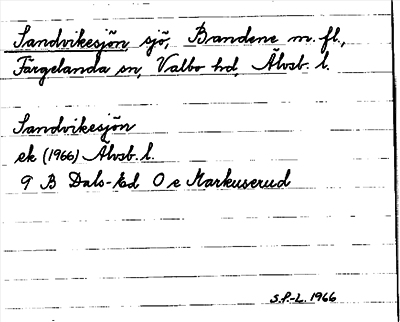 Sandvikesjön sjö, Bandene m. fl.,
Färgelanda sn, Valbo hd, Älvsb. l.
Sandvikesjön
ek (1966) Älvsb. l.
9 B Dals-Ed O e Markuserud
S.F.-L. 1966